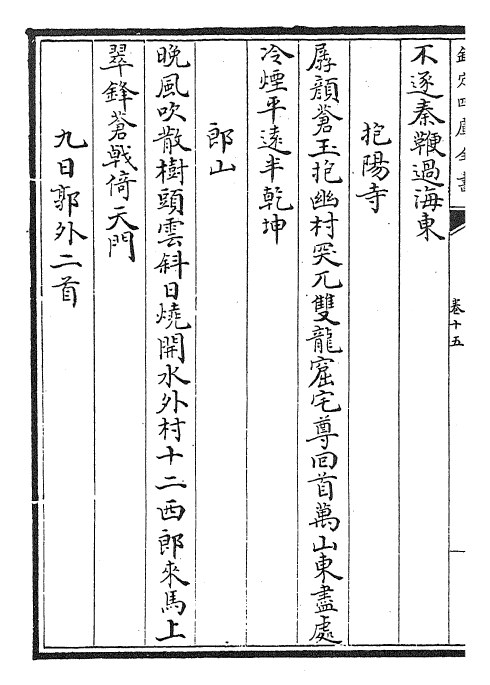 欽定四庫全書
卷十五
不逐秦鞭過海東
抱陽寺
孱顔蒼玉抱幽村突兀雙龍窟宅尊回首萬山東盡處
冷煙平遠半乾坤
郎山
晚風吹散樹頭雲斜日燒開水外村十二西郎來馬上
翠鋒蒼戟倚天門
九日郭外二首